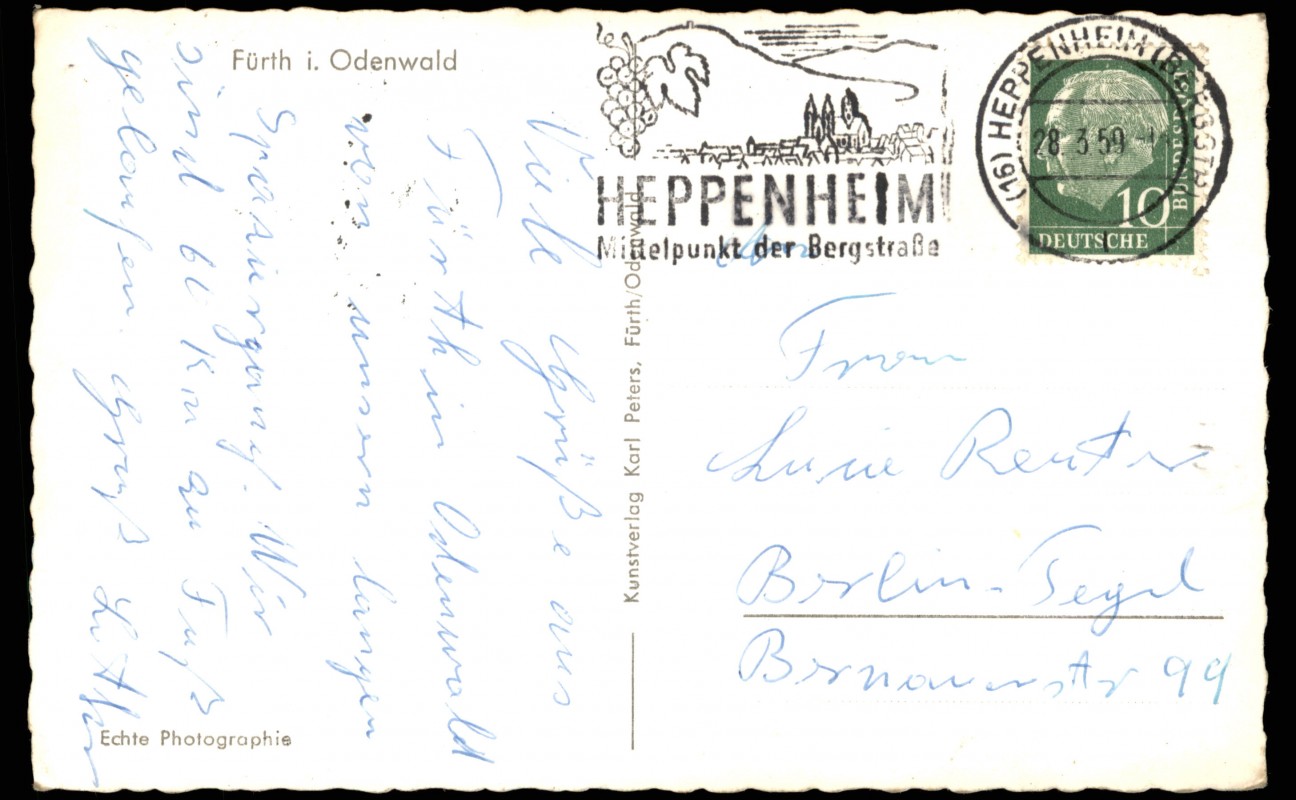 Fürth i. Odenwald
HEPPENHEIM
Mittelpunkt der Bergstraße
(16) HEPPENHEIM (BERGSTR)
28.3.59
10
DEUTSCHE
BUNDESPOST
Viele Grüße aus
Fürth im Odenwald
von unsern langen
Spaziergang. Wir
sind 60 km zu Fuß
gelaufen. Gruß
Kunstverlag Karl Peters, Fürth/Odenwald
An
Frau
Lucie Reuter
Berlin-Tegel
Bernauerstr 99
Echte Photographie